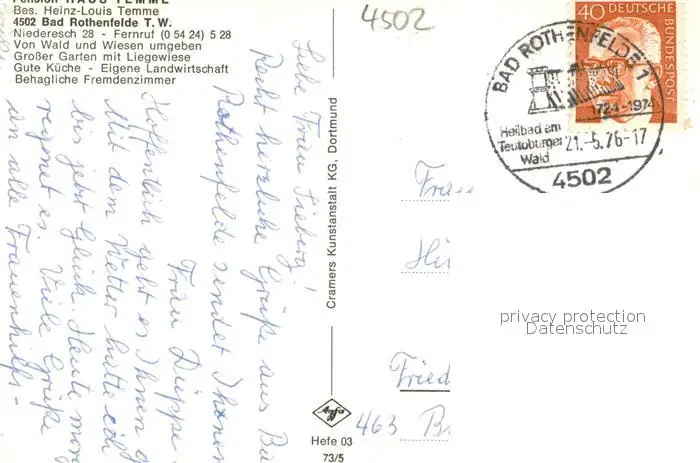 Pension HAUS TEMME
Bes. Heinz-Louis Temme
4502 Bad Rothenfelde T. W.
Niederesch 28 - Fernruf (0 54 24) 5 28
Von Wald und Wiesen umgeben
Großer Garten mit Liegewiese
Gute Küche - Eigene Landwirtschaft
Behagliche Fremdenzimmer
Liebe Frau Sieberg!
Recht herzliche Grüße aus Ba
Rothenfelde sendet Ihnen
Frau Düppe
Hoffentlich geht es Ihnen g
Mit dem Wetter hatte ich
bis jetzt Glück. Heute mor
regnet es. Viele Grüße
an alle Frauenhilfs-
Cramers Kunstanstalt KG, Dortmund
Agfa
Hefe 03
73/5
4502
40 DEUTSCHE BUNDESPOST
BAD ROTHENFELDE 1
724-1974
Heilbad am
Teutoburger
Wald
21.-5.76-17
4502
Frau
Fried
463 B
privacy protection
Datenschutz